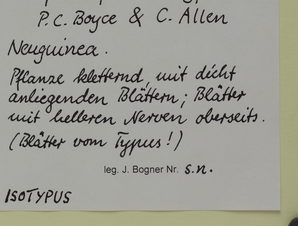 P.C. Boyce & C. Allen
Neuguinea.
Pflanze kletternd, mit dicht
anliegenden Blättern; Blätter
mit helleren Nerven oberseits.
(Blätter vom Typus!)
leg. J. Bogner Nr. s.n.
ISOTYPUS